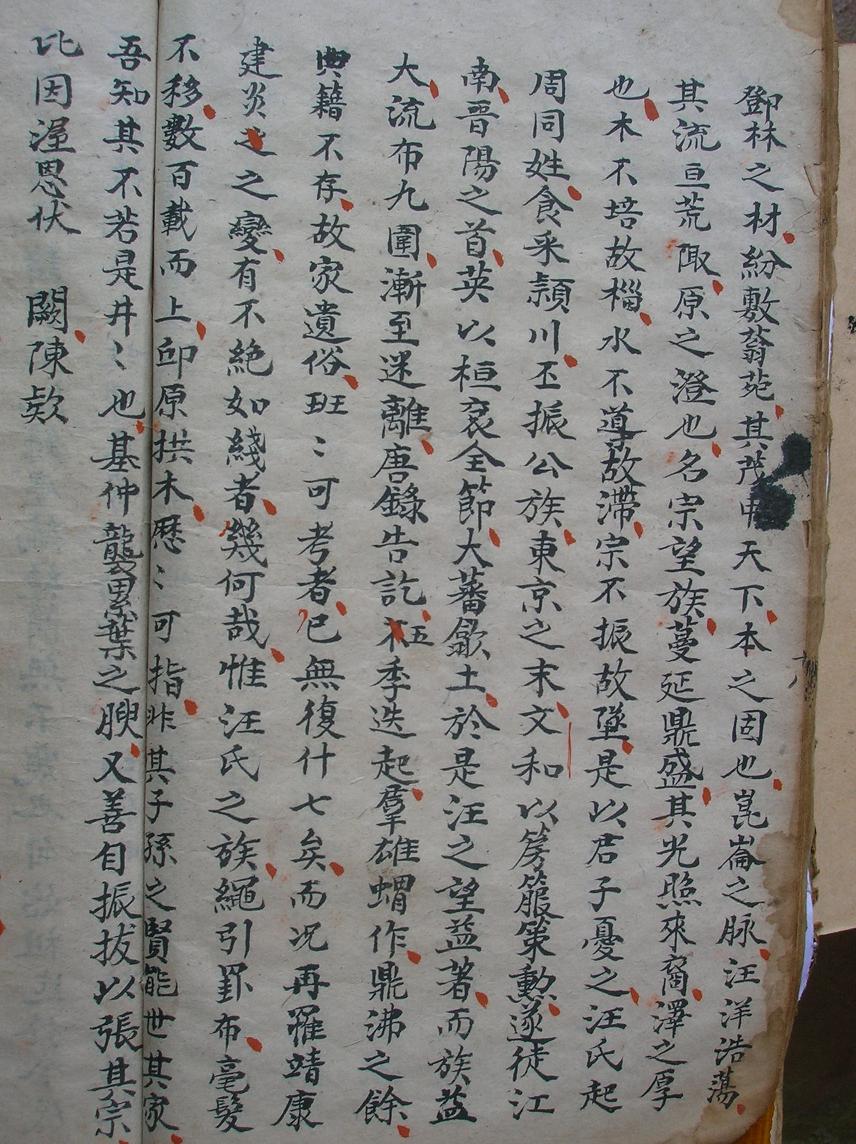 鄧林之材紛敷蓊苑其茂甲天下本之固也崑崙之脉汪洋浩蕩
其流亘荒陬原之澄也名宗望族蔓延鼎盛其光照來裔澤之厚
也木不培故椔水不導故滯宗不振故墜是以君子憂之汪氏起
周同姓食采潁川丕振公族東京之末文和以筹箙策勳遂徒江
南晋陽之首英以桓袞全節大蕃歙土於是汪之望益著而族益
大流布九圍漸至迷離唐錄告訖五季迭起羣雄蝟作鼎沸之餘
典籍不存故家遺俗班〻可考者已無復什七矣而况再罹靖康
建炎之變有不絶如綫者幾何哉惟汪氏之族繩引罫布毫髮
不移數百載而上邱原拱木歷〻可指非其子孫之賢能世其家
吾知其不若是井〻也基仲襲累葉之腴又善自振拔以張其宗
比因渥恩伏 闕陳欵